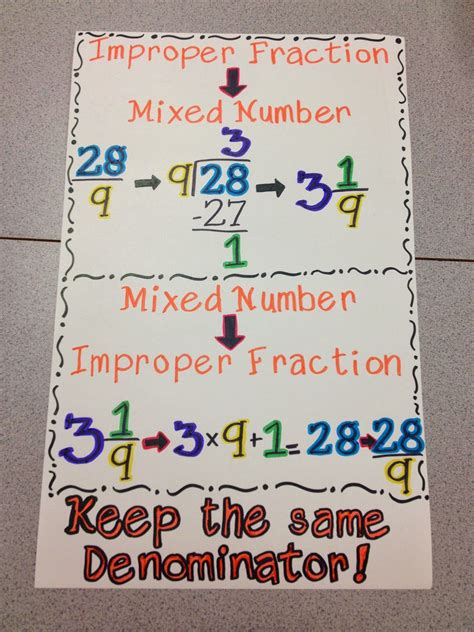 Improper Fraction
Mixed Number
3
28/9 → 9)28 → 3 1/9
-27
1
Mixed Number
Improper Fraction
3 1/9 → 3×9+1= 28 → 28/9
Keep the same
Denominator!